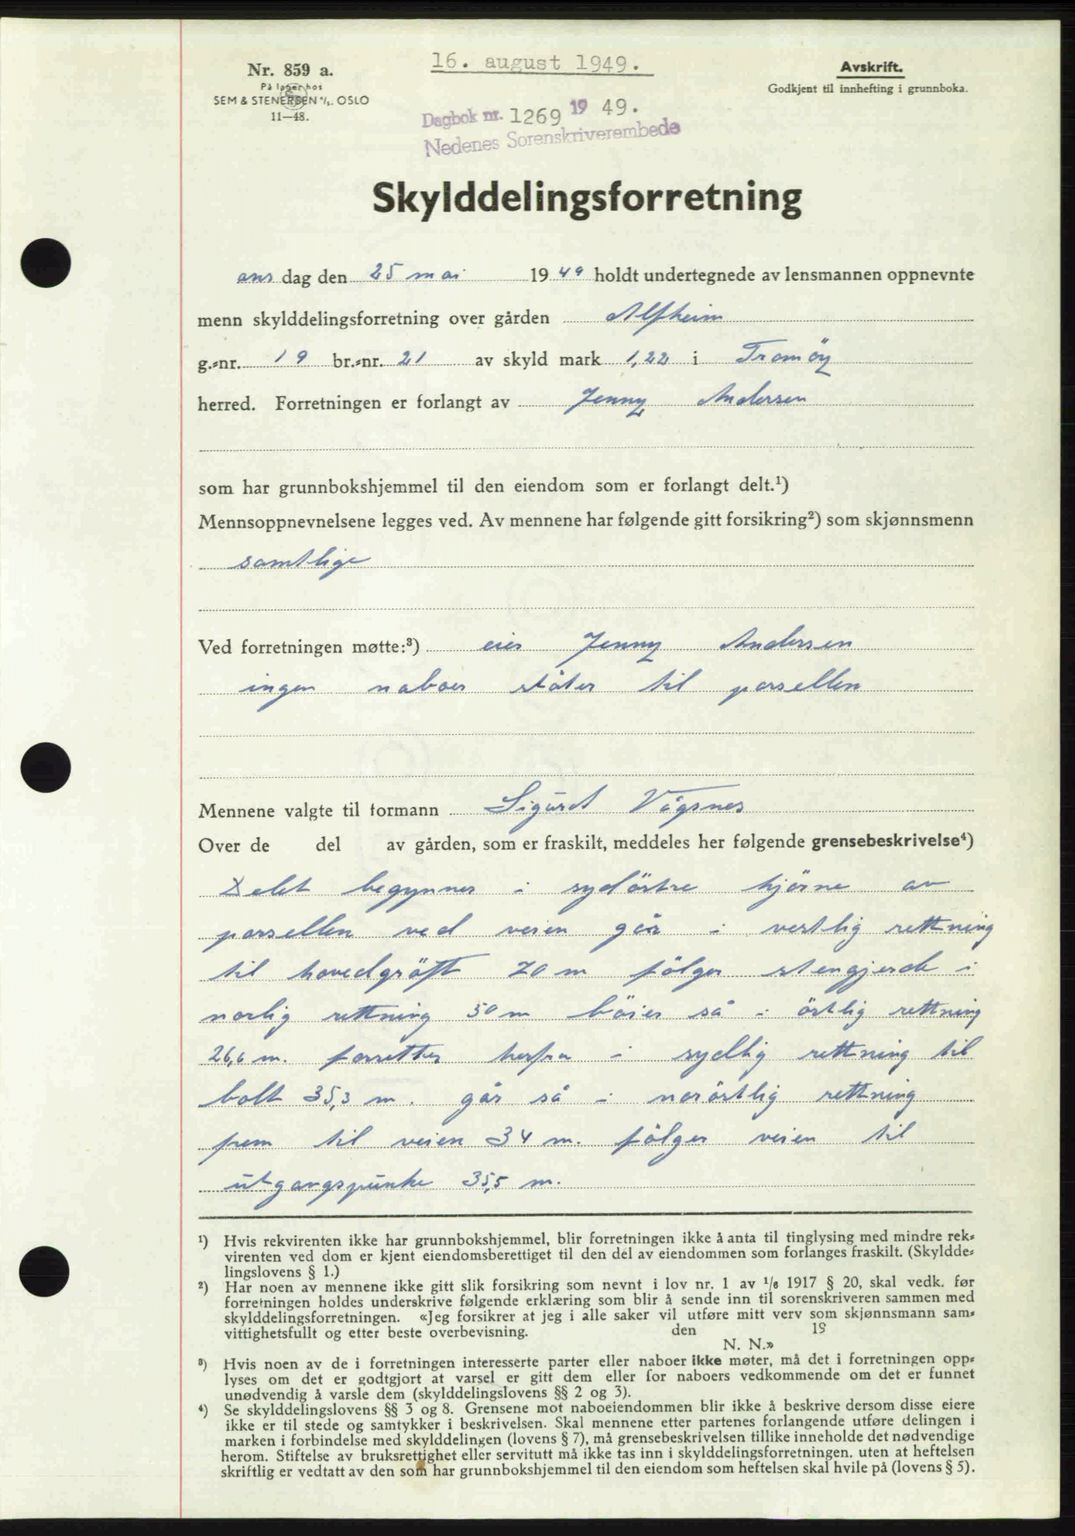 Nr. 859 a.
På lager hos
SEM & STENERSEN A/S. OSLO
11—48.
16. august 1949.
Avskrift.
Godkjent til innhefting i grunnboka.
Dagbok nr. 1269 19 49.
Nedenes Sorenskriverembede
Skylddelingsforretning
ons dag den 25 mai 19 49 holdt undertegnede av lensmannen oppnevnte
menn skylddelingsforretning over gården Alfheim
g.-nr. 19 br.-nr. 21 av skyld mark 1,22 i Tromöy
herred. Forretningen er forlangt av Jenny Andersen
som har grunnbokshjemmel til den eiendom som er forlangt delt.¹)
Mennsoppnevnelsene legges ved. Av mennene har følgende gitt forsikring²) som skjønnsmenn
samtlige
Ved forretningen møtte:³) eier Jenny Andersen
ingen naboer støter til parsellen
Mennene valgte til formann Sigurd Vågsnes
Over de del av gården, som er fraskilt, meddeles her følgende grensebeskrivelse⁴)
Delet begynner i sydöstre hjörne av
parsellen ved veien går i vestlig rettning
til hovedgröft 70 m fölger stengjerde i
norlig rettning 50 m böier så i östlig rettning
26,6 m. forsetter herfra i sydlig rettning til
bolt 35,3 m. går så i noröstlig rettning
frem til veien 34 m. fölger veien til
utgangspunkt 35,5 m.
¹) Hvis rekvirenten ikke har grunnbokshjemmel, blir forretningen ikke å anta til tinglysing med mindre rek-
virenten ved dom er kjent eiendomsberettiget til den del av eiendommen som forlanges fraskilt. (Skyldde-
lingslovens § 1.)
²) Har noen av mennene ikke gitt slik forsikring som nevnt i lov nr. 1 av 1/6 1917 § 20, skal vedk. før
forretningen holdes underskrive følgende erklæring som blir å sende inn til sorenskriveren sammen med
skylddelingsforretningen. «Jeg forsikrer at jeg i alle saker vil utføre mitt verv som skjønnsmann sam-
vittighetsfullt og etter beste overbevisning. den 19
N. N.»
³) Hvis noen av de i forretningen interesserte parter eller naboer ikke møter, må det i forretningen opp-
lyses om det er godtgjort at varsel er gitt dem eller for naboers vedkommende om det er funnet
unødvendig å varsle dem (skylddelingslovens §§ 2 og 3).
⁴) Se skylddelingslovens §§ 3 og 8. Grensene mot naboeiendommen blir ikke å beskrive dersom disse eiere
ikke er til stede og samtykker i beskrivelsen. Skal mennene etter partenes forlangende utføre delingen i
marken i forbindelse med skylddelingen (lovens § 7), må grensebeskrivelsen tillike inneholde det nødvendige
herom. Stiftelse av bruksrettighet eller servitutt må ikke tas inn i skylddelingsforretningen. uten at heftelsen
skriftlig er vedtatt av den som har grunnbokshjemmel til den eiendom som heftelsen skal hvile på (lovens § 5).